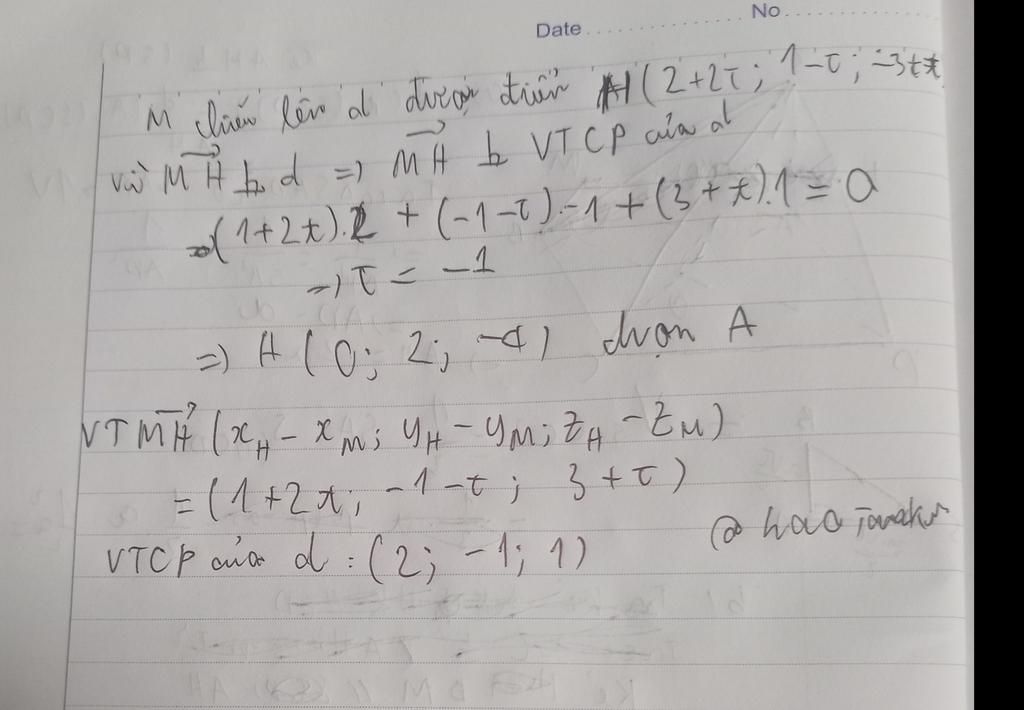 Date ............... No ...............
M chiếu lên d được điểm H(2+2t; 1-t; -3+t
và \overrightarrow{MH} ⊥ d => \overrightarrow{MH} ⊥ VTCP của d
(1+2t).2 + (-1-t).-1 + (3+t).1 = 0
→ t = -1
=> H (0; 2; -4) chọn A
VT \overrightarrow{MH} (x_H - x_M; y_H - y_M; z_H - z_M)
= (1+2t; -1-t; 3+t)
VTCP của d : (2; -1; 1)
@ hao